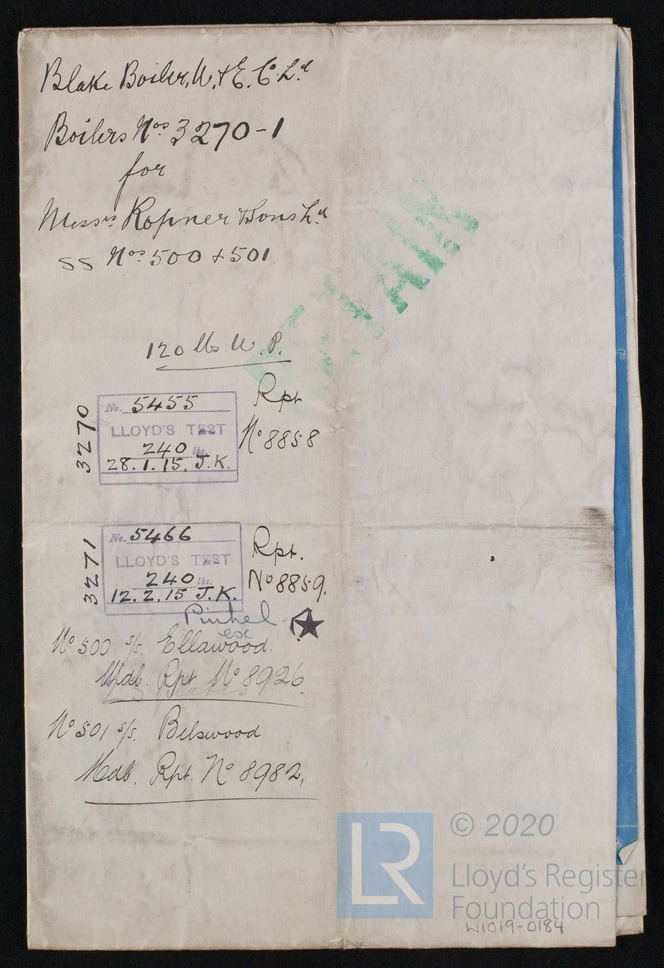 Blake Boiler, W. & E. Co. Ld
Boilers Nos 3270-1
for
Messrs Ropner & Sons Ld
SS Nos 500 & 501
RETAIN
120 lbs W.P.
3270
No. 5455
LLOYD'S TEST
240 lbs.
28.1.15. J.K.
Rpt
No 8858
3271
No. 5466
LLOYD'S TEST
240 lbs.
12.2.15 J.K.
Rpt.
No 8859.
No 500 s/s. Ellawood.
Mdb. Rpt No 8926.
No 501 s/s. Belswood
Mdb. Rpt. No 8982.
LR
© 2020
Lloyd's Register
Foundation
W1019-0184